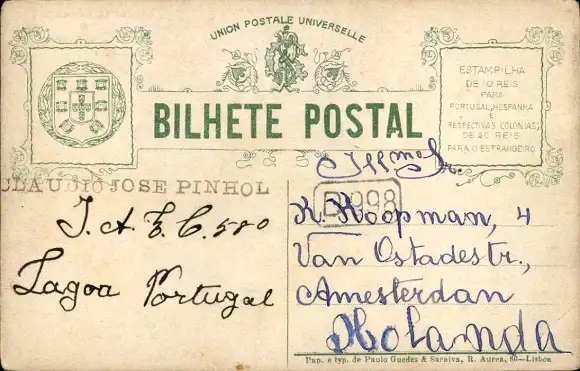 UNION POSTALE UNIVERSELLE
BILHETE POSTAL
ESTAMPILHA
DE 10 REIS
PARA
PORTUGAL, HESPANHA
E
RESPECTIVAS COLONIAS;
DE 20 REIS
PARA O ESTRANGEIRO
CLAUDIO JOSE PINHOL
Lagoa Portugal
Illmo Sr.
K. Koopman, 4
Van Ostadestr.,
Amesterdan
Holanda
Pap. e typ. de Paulo Guedes & Saraiva, R. Aurea, 80—Lisboa